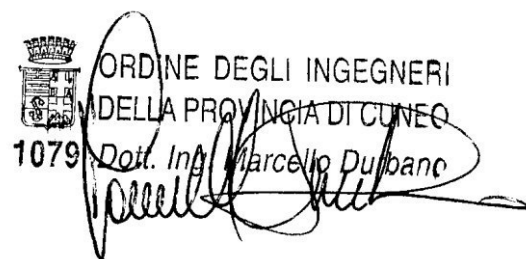 ORDINE DEGLI INGEGNERI
DELLA PROVINCIA DI CUNEO
1079 Dott. Ing. Marcello Durbano